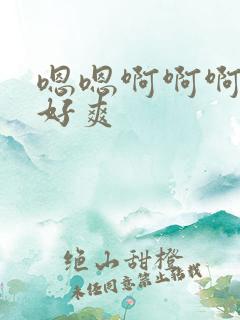 嗯嗯啊啊啊
好爽
绝山甜橙
未经同意禁止转载